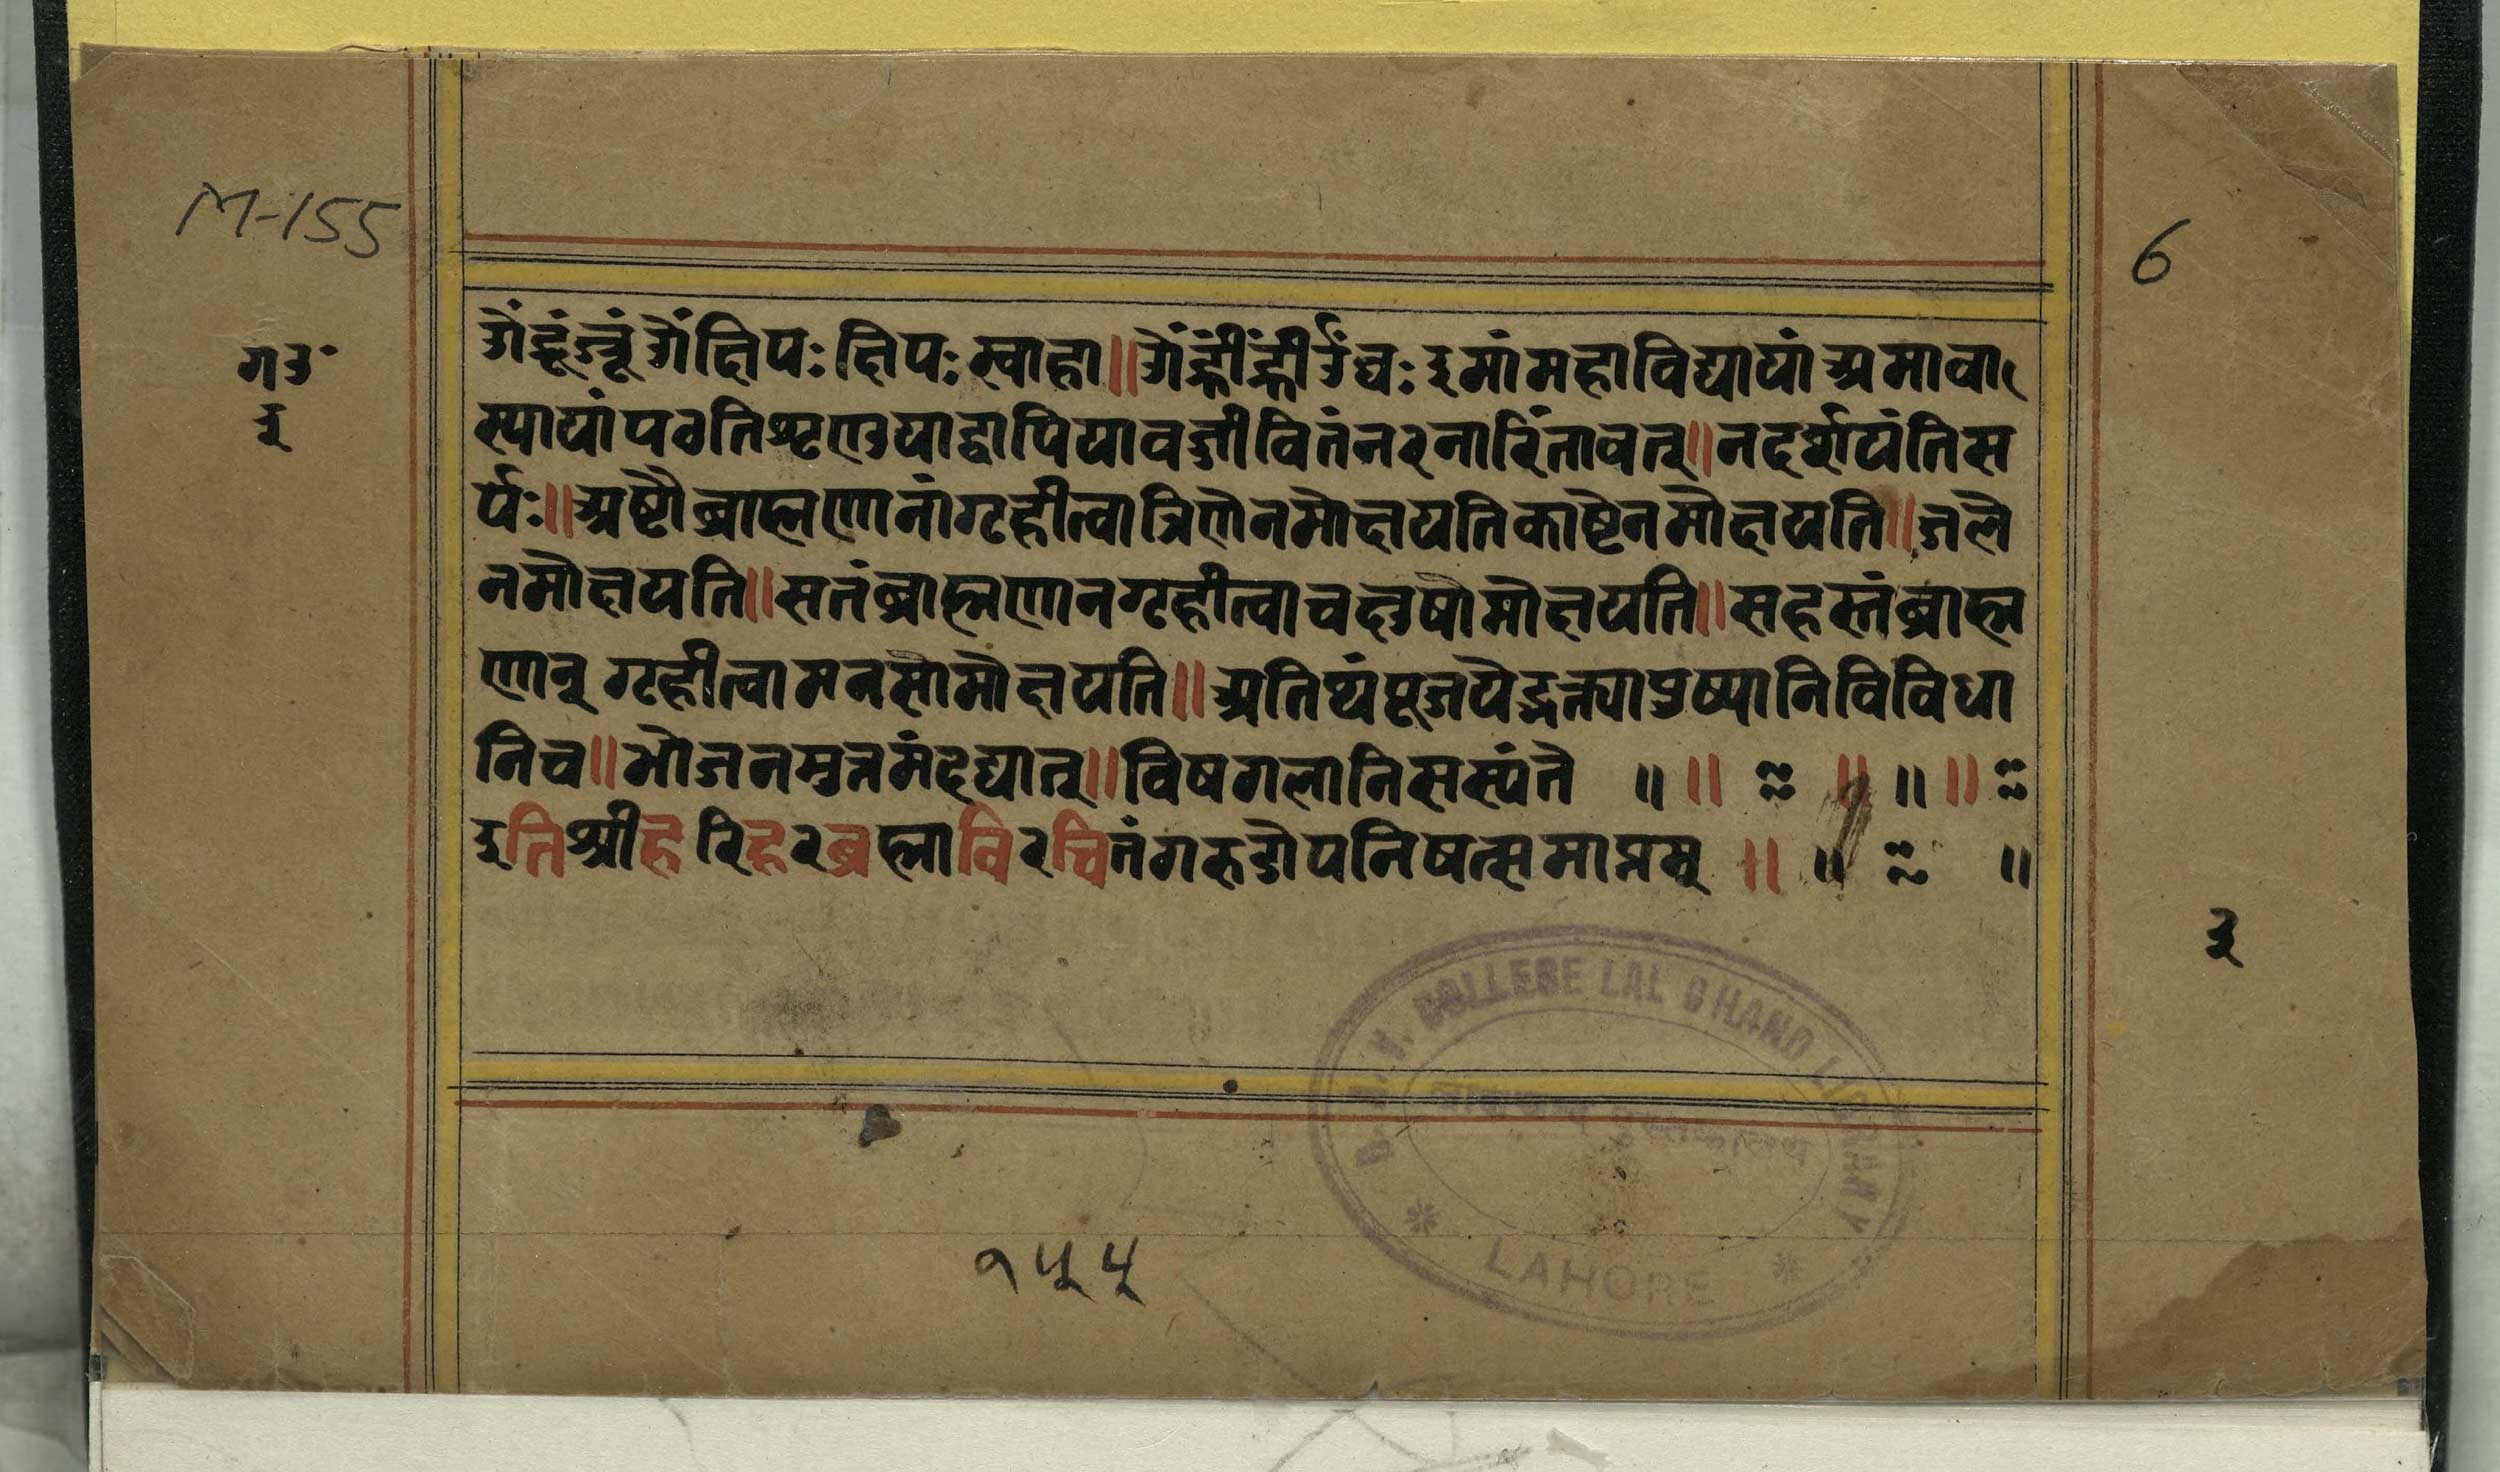 M-155
6
गरुं
३
ॐह्रूंज्वूंॐक्षिपःक्षिपःस्वाहा॥ॐह्रींह्रीं इमांमहाविद्यायांअमावा
स्यायांपठतिशृण्उयाद्वापियावज्जीवितंनरनारिंतावत्॥नदर्शयंतिस
र्पः॥अष्टौब्राह्मणानांगृहीत्वात्रिणेनमोक्षयतिकाष्टेनमोक्षयति॥जले
नमोक्षयति॥सतंब्राह्मणानगृहीत्वाचक्षुषोमोक्षयति॥सहस्तंब्राह्म
णान्गृहीत्वामनसोमोक्षयति॥अतिथ्यंपूजयेद्भक्त्यापुष्पानिविविधा
निच॥भोजनमुत्तमंदद्यात्॥विषगलानिसस्यंते ॥ ॥ ॥ ॥ ॥
इतिश्रीहरिहरब्रह्माविरचितंगरुडोपनिषत्समाप्तम् ॥ ॥ ॥
३
D.A.V. COLLEGE LAL CHAND LIBRARY
लालचन्द पुस्तकालय
* LAHORE *
१५५